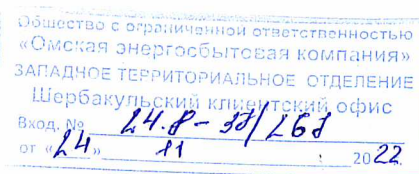 Общество с ограниченной ответственностью
«Омская энергосбытовая компания»
ЗАПАДНОЕ ТЕРРИТОРИАЛЬНОЕ ОТДЕЛЕНИЕ
Шербакульский клиентский офис
Вход. № 24.8-37/267
от «24» 11 2022